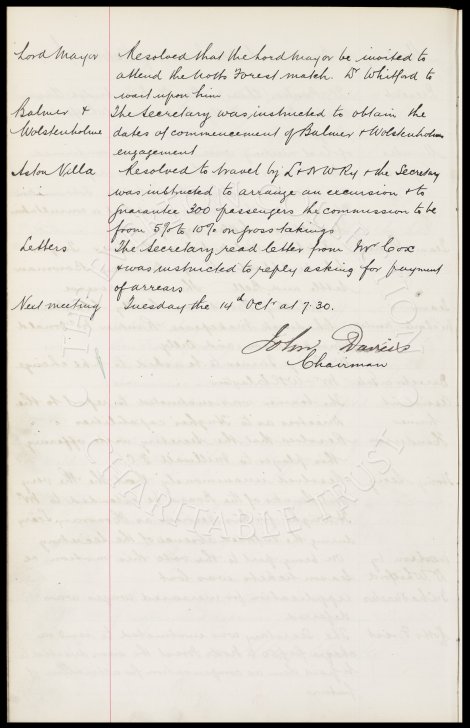 Lord Mayor Resolved that the Lord Mayor be invited to
attend the Notts Forest match. Dr Whitford to
wait upon him
Balmer & The Secretary was instructed to obtain the
Wolstenholme dates of commencement of Balmer & Wolstenholms
engagement
Aston Villa Resolved to travel by L & N W Ry & the Secretary
was instructed to arrange an excursion & to
guarantee 300 passengers the commission to be
from 5% to 10% on gross takings
Letters The Secretary read letter from Mr Cox
& was instructed to reply asking for payment
of arrears
Next meeting Tuesday the 14th Octr at 7-30.
John Davies
Chairman
CHARITABLE TRUST